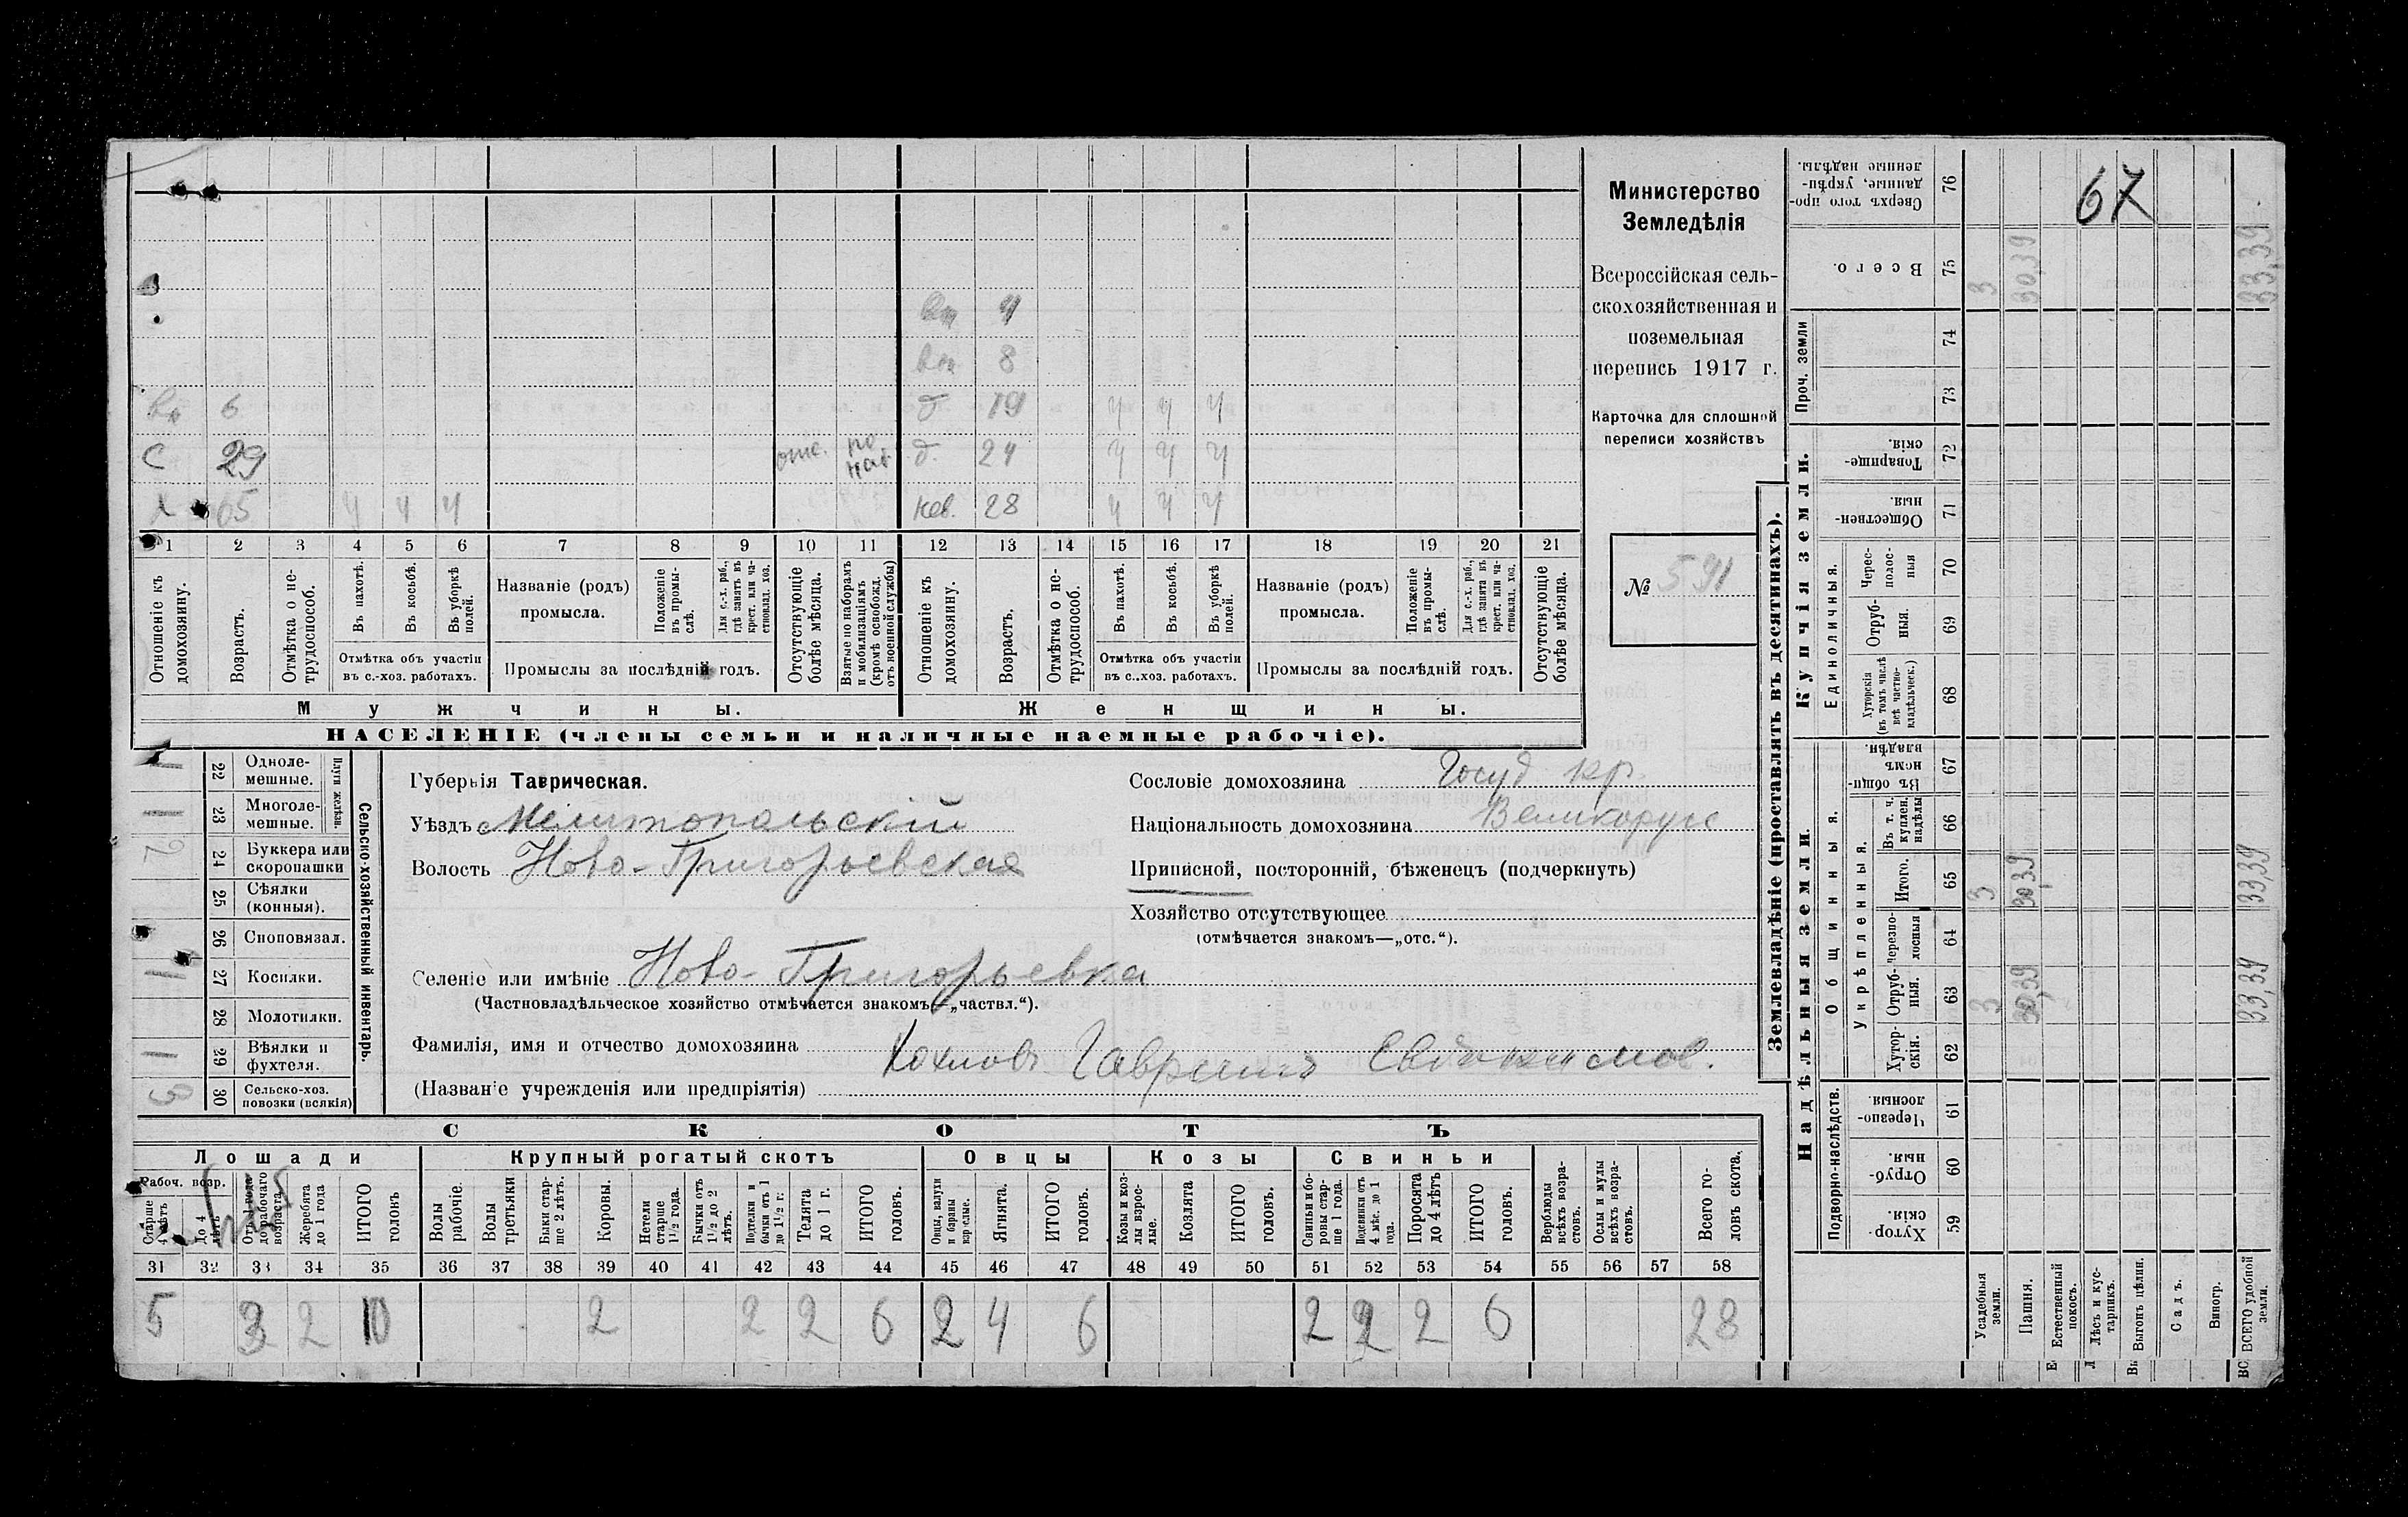 Министерство
Земледѣлія
Всероссійская сель-
скохозяйственная и
поземельная
перепись 1917 г.
Карточка для сплошной
переписи хозяйствъ
№ 591
67
вн 4
вн 8
вн 6 д 19 ч ч ч
с 29 отс. по моб д. 24 ч ч ч
х 65 ч ч ч нев. 28 ч ч ч
1 2 3 4 5 6 7 8 9 10 11 12 13 14 15 16 17 18 19 20 21
Отношеніе къ домохозяину.
Возрастъ.
Отмѣтка о не-трудоспособ.
Въ пахотѣ.
Въ косьбѣ.
Въ уборкѣ полей.
Отмѣтка объ участіи
въ с.-хоз. работахъ.
Названіе (родъ)
промысла.
Положеніе въ промы-слѣ.
Для с.-х. раб., гдѣ занятъ въ крест. или ча-стновлад. хоз.
Промыслы за послѣдній годъ.
Отсутствующіе болѣе мѣсяца.
Взятые по наборамъ и мобилизаціямъ (кромѣ освобожд. отъ военной службы)
Отношеніе къ домохозяину.
Возрастъ.
Отмѣтка о не-трудоспособ.
Въ пахотѣ.
Въ косьбѣ.
Въ уборкѣ полей.
Отмѣтка объ участіи
въ с.-хоз. работахъ.
Названіе (родъ)
промысла.
Положеніе въ промы-слѣ.
Для с.-х. раб., гдѣ занята въ крест. или ча-стновлад. хоз.
Промыслы за послѣдній годъ.
Отсутствующіе болѣе мѣсяца.
Мужчины. Женщины.
НАСЕЛЕНІЕ (члены семьи и наличные наемные рабочіе).
Сельско-хозяйственный инвентарь.
Плуги желѣзн.
1 22 Одноле-мешные.
1 23 Многоле-мешные.
2 24 Буккера или скоропашки
25 Сѣялки (конныя).
26 Сноповязал.
1 27 Косилки.
28 Молотилки.
1 29 Вѣялки и фухтеля.
3 30 Сельско-хоз. повозки (всякія)
Губернія Таврическая.
Уѣздъ Мелитопольскій
Волость Ново-Григорьевская
Селеніе или имѣніе Ново-Григорьевка
(Частновладѣльческое хозяйство отмѣчается знакомъ—„частвл.“).
Фамилія, имя и отчество домохозяина Хохловъ Гавриилъ Евдокимов.
(Названіе учрежденія или предпріятія)
Сословіе домохозяина Госуд кр.
Національность домохозяина Великорусс
Приписной, посторонній, бѣженецъ (подчеркнуть)
Хозяйство отсутствующее
(отмѣчается знакомъ—„отс.“).
СКОТЪ
Лошади Крупный рогатый скотъ Овцы Козы Свиньи
Рабоч. возр.
Старше 4 лѣтъ
До 4 лѣтъ
Отъ 1 года до рабочаго возраста
Жеребята до 1 года
ИТОГО головъ
Волы рабочіе.
Волы третьяки
Быки стар-ше 2 лѣтъ.
Коровы.
Нетели старше 1½ года.
Бычки отъ 1½ до 2 лѣтъ.
Подтелки и бычки отъ 1 до 1½ г.
Телята до 1 г.
ИТОГО головъ.
Овцы, валухи и бараны взрослые.
Ягнята.
ИТОГО головъ.
Козы и коз-лы взрос-лые.
Козлята
ИТОГО головъ.
Свиньи и бо-ровы стар-ше 1 года.
Подсвинки отъ 4 мѣс. до 1 года.
Поросята до 4 лѣтъ
ИТОГО головъ.
Верблюды всѣхъ возра-стовъ.
Ослы и мулы всѣхъ возра-стовъ.
Всего го-ловъ скота.
31 32 33 34 35 36 37 38 39 40 41 42 43 44 45 46 47 48 49 50 51 52 53 54 55 56 57 58
5 3 2 10 2 2 2 6 2 4 6 2 2 2 6 28
Землевладѣніе (проставлять въ десятинахъ).
Купчія земли.
Надѣльныя земли.
Проч. земли
Единоличныя.
Общинныя.
Укрѣпленныя.
Подворно-наслѣдств.
Сверхъ того про-данные, укрѣп-ленные надѣлы. 76
Всего. 75 3 30,39 33,39
74
73
Товарище-скія. 72
Обществен-ныя. 71
Черес-полос-ныя 70
Отруб-ныя. 69
Хуторскія (въ томъ числѣ всѣ частно-владѣльческ.) 68
Въ общин-номъ владѣн. 67
Въ т. ч. куплен. надѣлы 66
Итого. 65 3 30,39 33,39
Черезпо-лосныя 64
Отруб-ныя. 63 3 30,39 33,39
Хутор-скія. 62
Черезпо-лосныя. 61
Отруб-ныя. 60
Хутор-скія. 59
Усадебныя земли.
Пашня.
Естественный покосъ.
Лѣсъ и кус-тарникъ.
Выгонъ цѣлин.
Садъ.
Виногр.
ВСЕГО удобной земли.